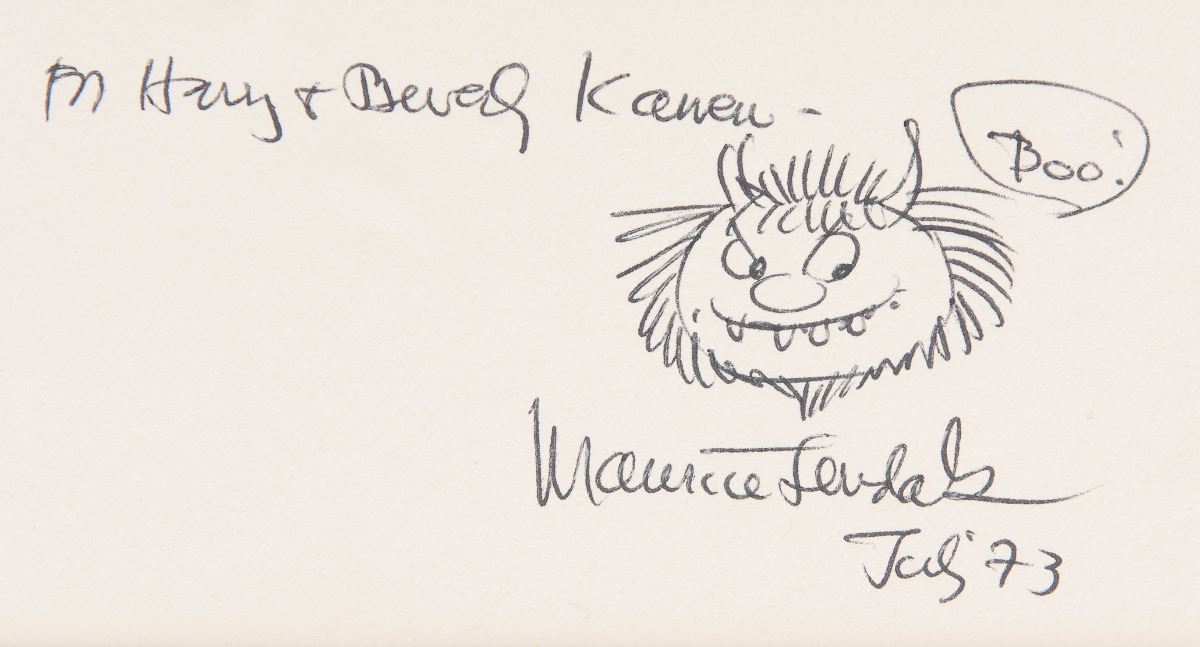 For Harry + Beverly Kanen -
Boo!
Maurice Sendak
July 73